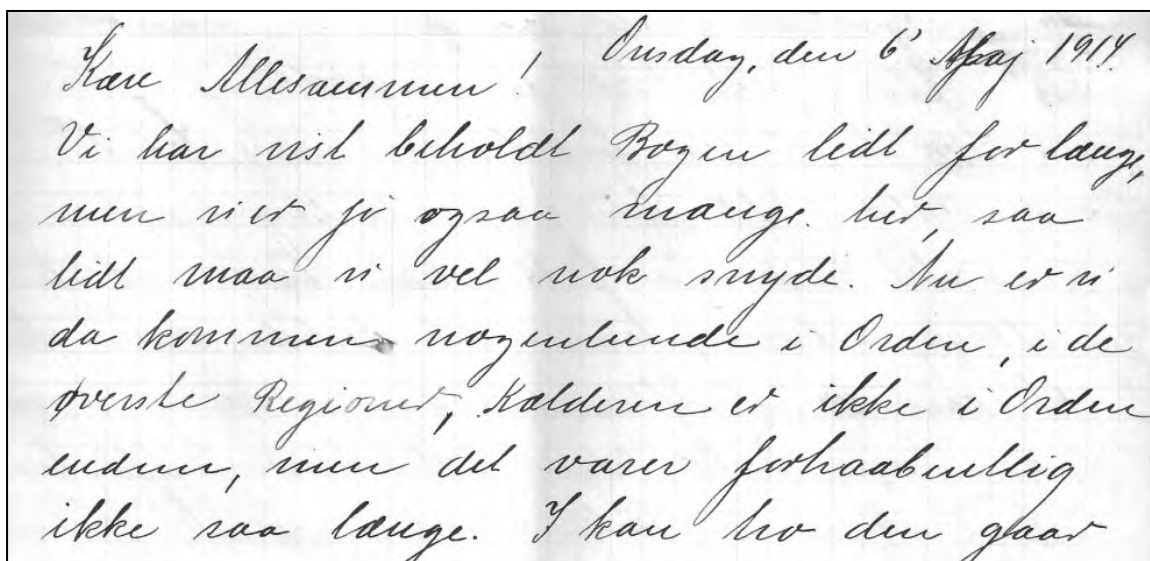 Onsdag, den 6' Maj 1914.
Kære Allesammen!
Vi har vist beholdt Bogen lidt for længe,
men vi er jo ogsaa mange her, saa
lidt maa vi vel nok snyde. Nu er vi
da kommen nogenlunde i Orden, i de
øverste Regioner, Kælderen er ikke i Orden
endnu, men det varer forhaabentlig
ikke saa længe. I kan tro den gaar